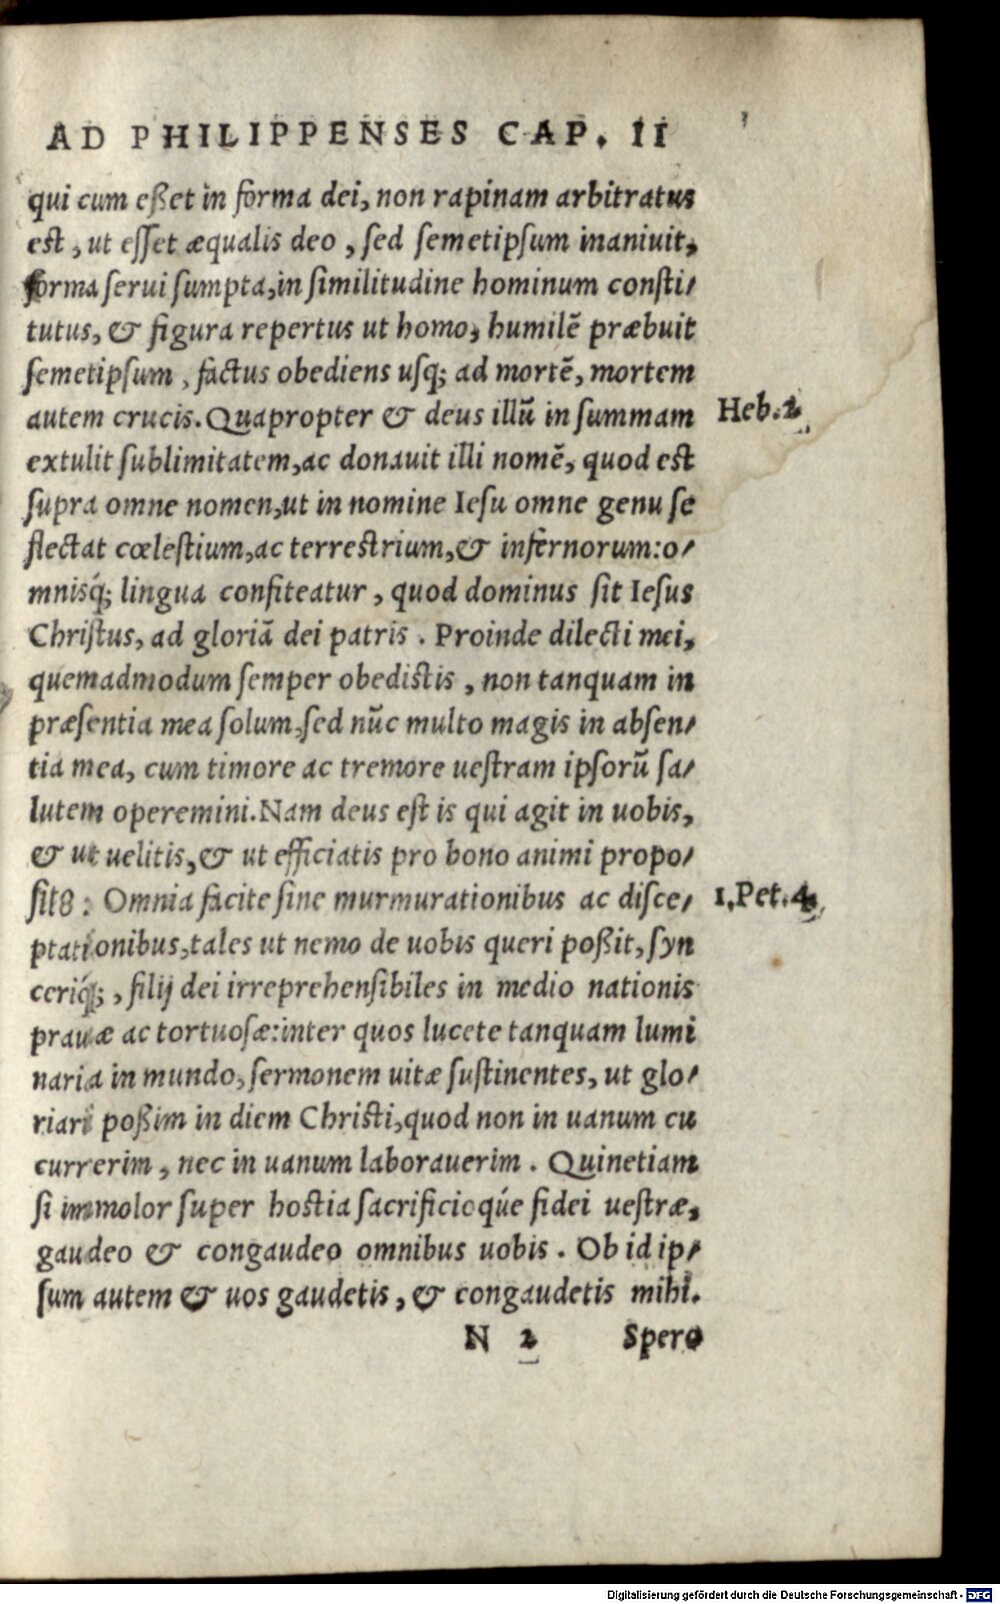 AD PHILIPPENSES CAP. II
qui cum eßet in forma dei, non rapinam arbitratus
est, ut eſſet æqualis deo, ſed ſemetipſum inaniuit,
forma ſerui ſumpta, in ſimilitudine hominum conſti/
tutus, & figura repertus ut homo, humilē præbuit
ſemetipſum, factus obediens uſq; ad mortē, mortem
autem crucis. Quapropter & deus illū in ſummam
Heb. 2
extulit ſublimitatem, ac donauit illi nomē, quod est
ſupra omne nomen, ut in nomine Ieſu omne genu ſe
flectat cœleſtium, ac terrestrium, & infernorum: o/
mnisq́; lingua confiteatur, quod dominus ſit Ieſus
Chriſtus, ad gloriā dei patris. Proinde dilecti mei,
quemadmodum ſemper obedistis, non tanquam in
præſentia mea ſolum, ſed nūc multo magis in abſen/
tia mea, cum timore ac tremore ueſtram ipſorū ſa/
lutem operemini. Nam deus eſt is qui agit in uobis,
& ut uelitis, & ut efficiatis pro bono animi propo/
ſito: Omnia facite ſine murmurationibus ac diſce/
1. Pet. 4
ptationibus, tales ut nemo de uobis queri poßit, ſyn
ceriq́;, filij dei irreprehenſibiles in medio nationis
prauæ ac tortuoſæ: inter quos lucete tanquam lumi
naria in mundo, ſermonem uitæ ſuſtinentes, ut glo/
riari poßim in diem Chriſti, quod non in uanum cu
currerim, nec in uanum laborauerim. Quinetiam
ſi immolor ſuper hostia ſacrificioq́ue fidei ueſtræ,
gaudeo & congaudeo omnibus uobis. Ob id ip/
ſum autem & uos gaudetis, & congaudetis mihi.
N 2 Spero
Digitalisierung gefördert durch die Deutsche Forschungsgemeinschaft - DFG